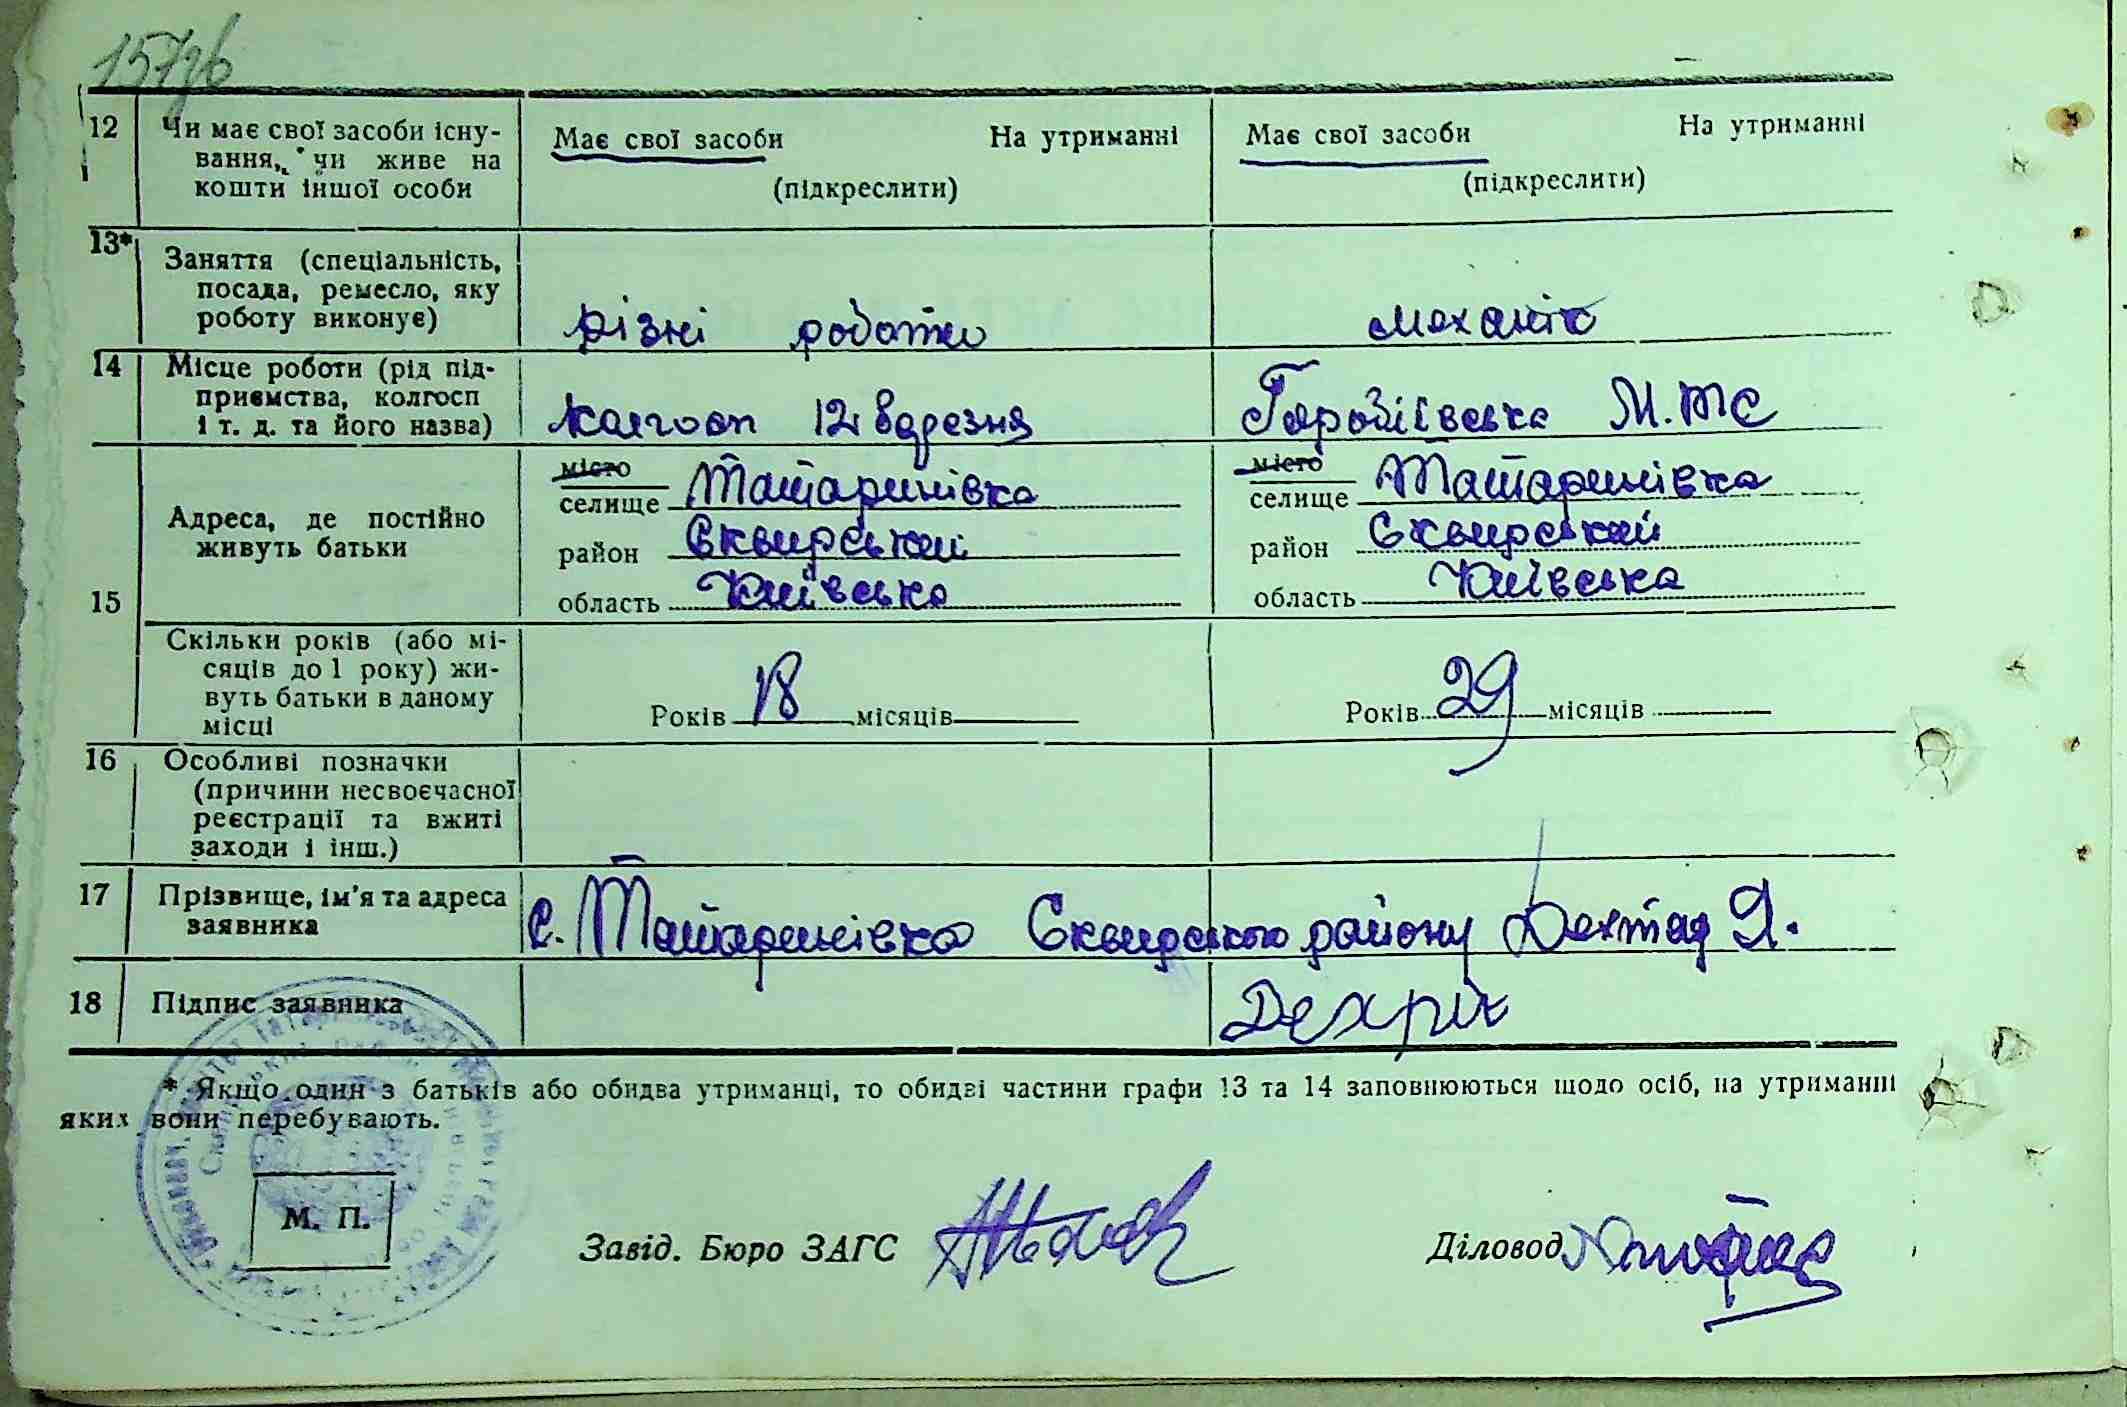 157зв
12 Чи має свої засоби існу- Має свої засоби На утриманні Має свої засоби На утриманні
вання, чи живе на
кошти іншої особи (підкреслити) (підкреслити)
13* Заняття (спеціальність,
посада, ремесло, яку
роботу виконує) різні роботи механік
14 Місце роботи (рід під-
приємства, колгосп
і т. д. та його назва) колгосп 12 березня М.ТС
місто місто
селище Татаринівка селище Татаринівка
Адреса, де постійно район Сквирський район Сквирський
живуть батьки
15 область Київська область Київська
Скільки років (або мі-
сяців до 1 року) жи-
вуть батьки в даному Років 18 місяців Років 29 місяців
місці
16 Особливі позначки
(причини несвоєчасної
реєстрації та вжиті
заходи і інш.)
17 Прізвище, ім'я та адреса
заявника с. Татаринівка Сквирського району Дехтяр Я.
18 Підпис заявника
* Якщо один з батьків або обидва утриманці, то обидві частини графи 13 та 14 заповнюються щодо осіб, на утриманні
яких вони перебувають.
М. П.
Завід. Бюро ЗАГС Діловод